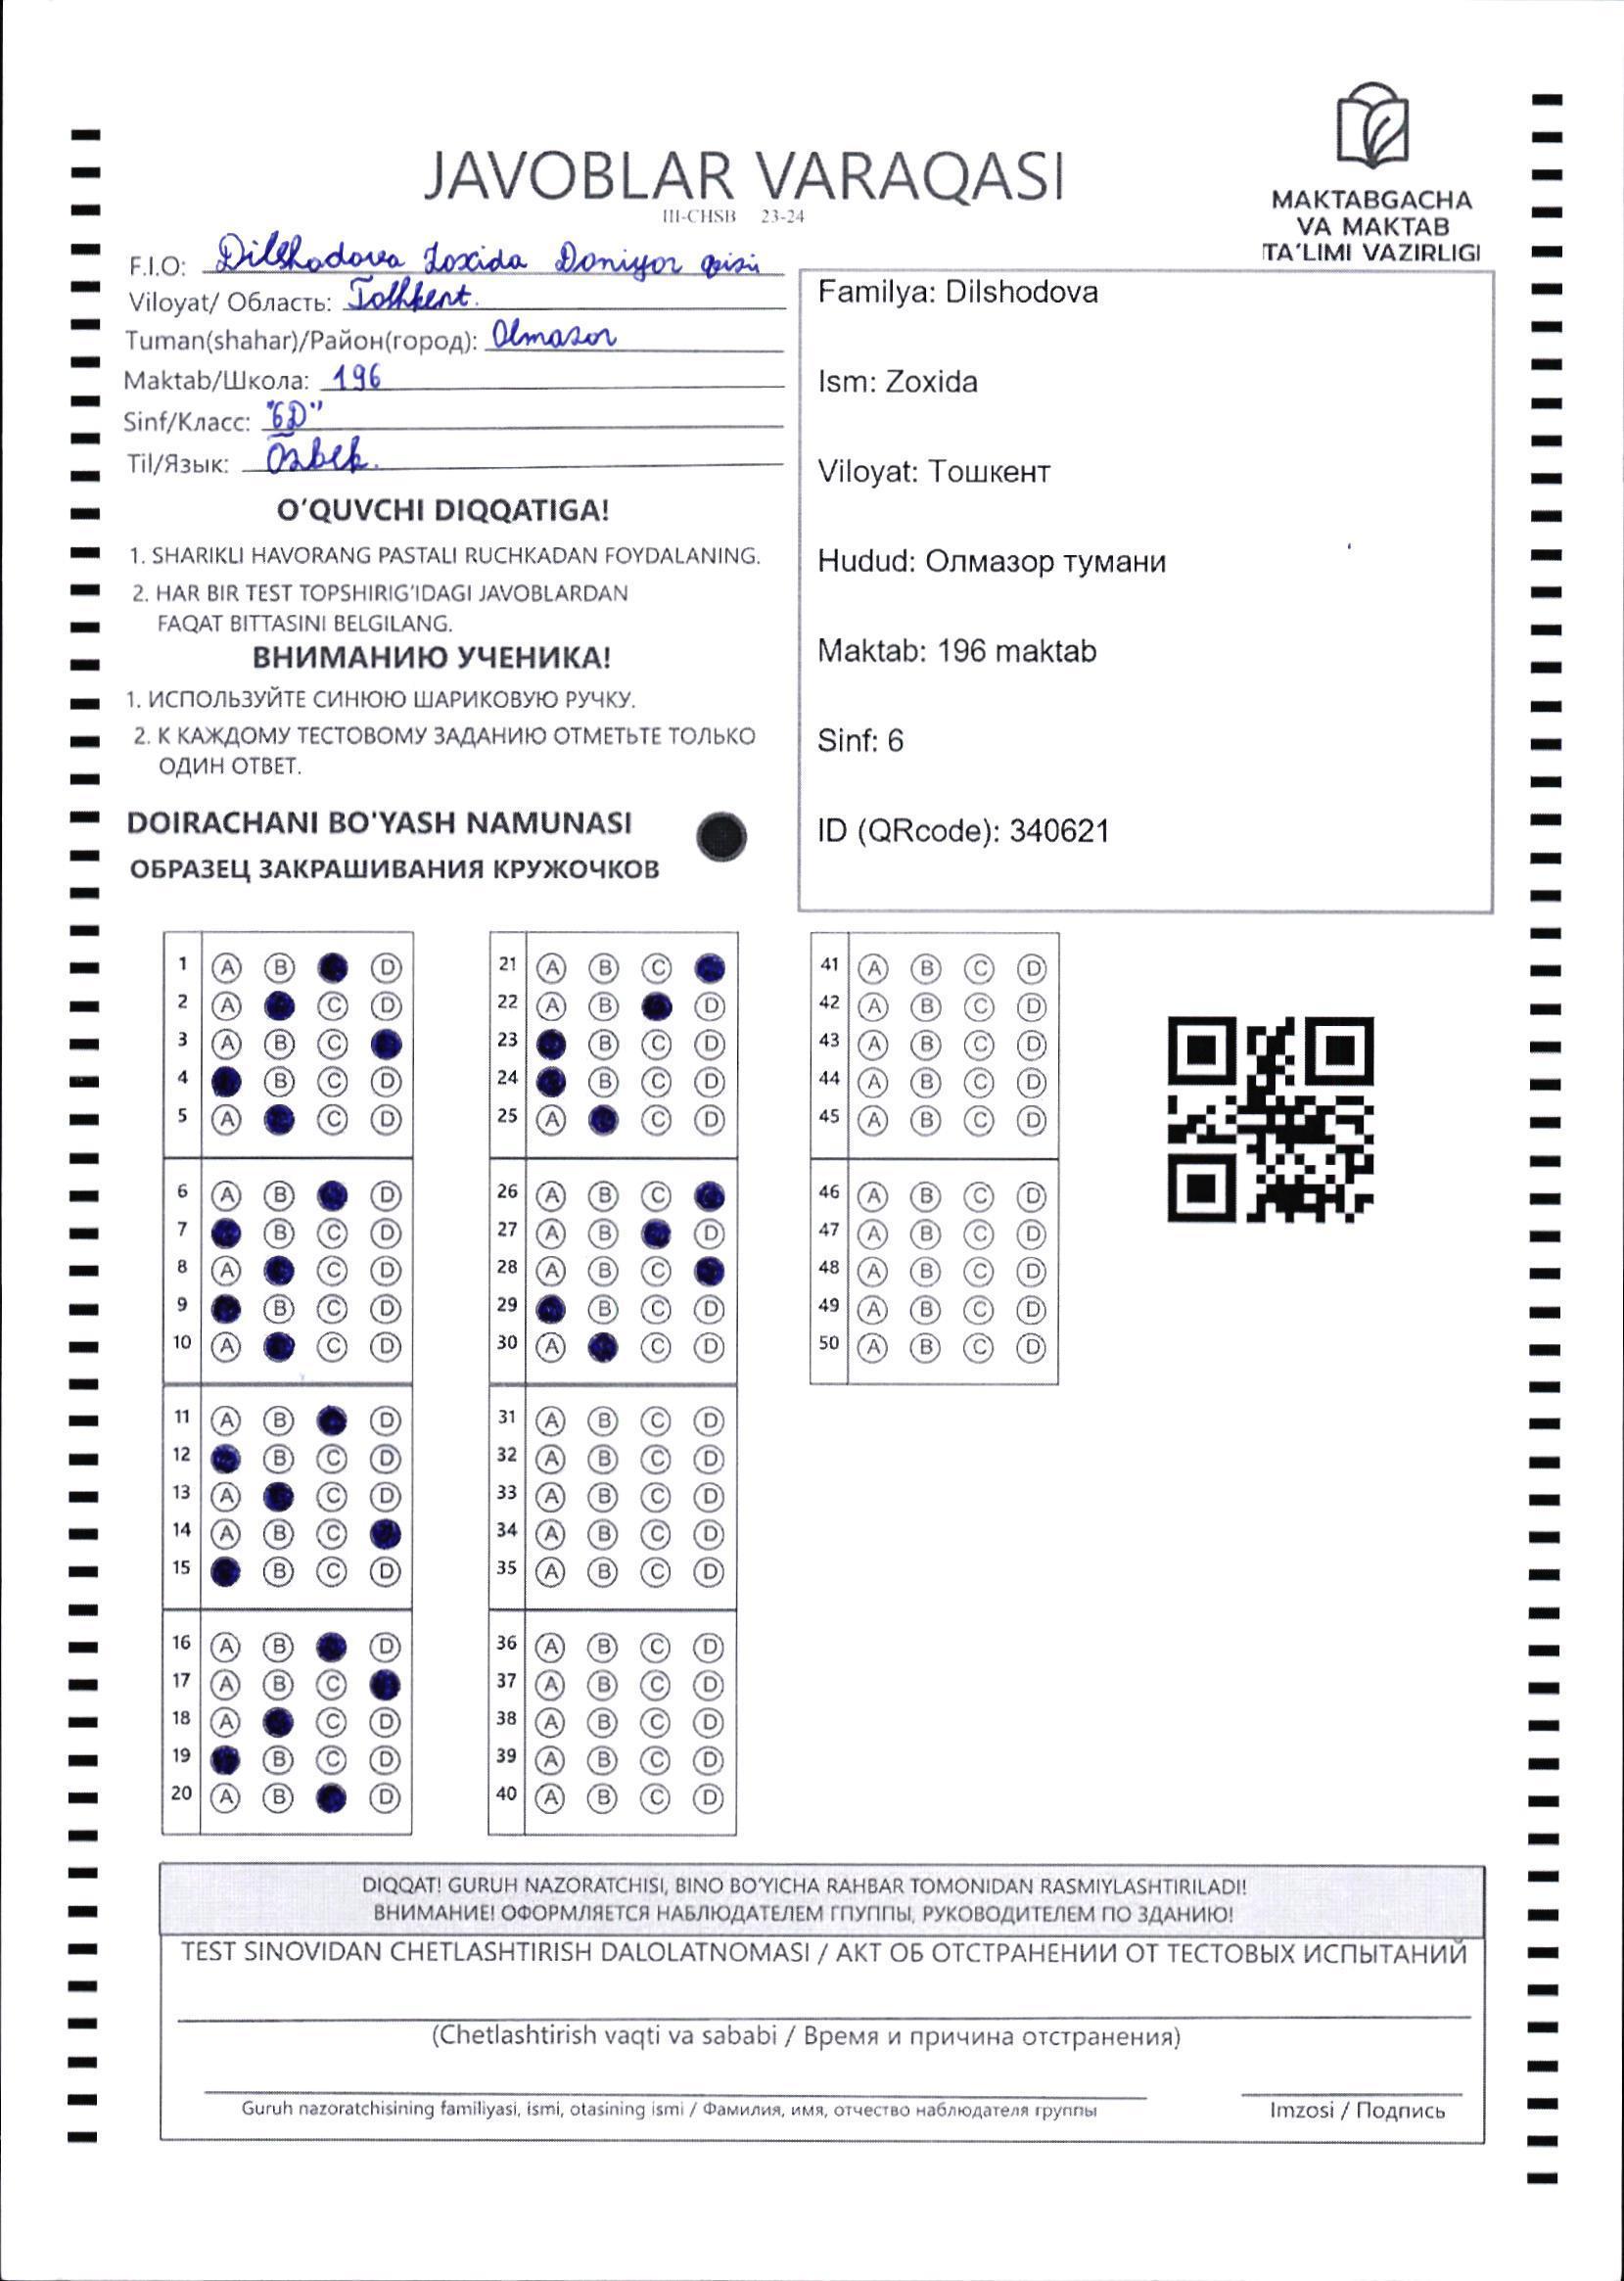 JAVOBLAR VARAQASI
III-CHSB 23-24
MAKTABGACHA
VA MAKTAB
TA'LIMI VAZIRLIGI
F.I.O: Dilshodova Zoxida Doniyor qizi
Viloyat/ Область: Toshkent.
Tuman(shahar)/Район(город): Olmazor
Maktab/Школа: 196
Sinf/Класс: "6D"
Til/Язык: Ozbek.
O'QUVCHI DIQQATIGA!
1. SHARIKLI HAVORANG PASTALI RUCHKADAN FOYDALANING.
2. HAR BIR TEST TOPSHIRIG'IDAGI JAVOBLARDAN
FAQAT BITTASINI BELGILANG.
ВНИМАНИЮ УЧЕНИКА!
1. ИСПОЛЬЗУЙТЕ СИНЮЮ ШАРИКОВУЮ РУЧКУ.
2. К КАЖДОМУ ТЕСТОВОМУ ЗАДАНИЮ ОТМЕТЬТЕ ТОЛЬКО
ОДИН ОТВЕТ.
DOIRACHANI BO'YASH NAMUNASI
ОБРАЗЕЦ ЗАКРАШИВАНИЯ КРУЖОЧКОВ
Familya: Dilshodova
Ism: Zoxida
Viloyat: Тошкент
Hudud: Олмазор тумани
Maktab: 196 maktab
Sinf: 6
ID (QRcode): 340621
1 A B D
2 A C D
3 A B C
4 B C D
5 A C D
6 A B D
7 B C D
8 A C D
9 B C D
10 A C D
11 A B D
12 B C D
13 A C D
14 A B C
15 B C D
16 A B D
17 A B C
18 A C D
19 B C D
20 A B D
21 A B C
22 A B D
23 B C D
24 B C D
25 A C D
26 A B C
27 A B D
28 A B C
29 B C D
30 A C D
31 A B C D
32 A B C D
33 A B C D
34 A B C D
35 A B C D
36 A B C D
37 A B C D
38 A B C D
39 A B C D
40 A B C D
41 A B C D
42 A B C D
43 A B C D
44 A B C D
45 A B C D
46 A B C D
47 A B C D
48 A B C D
49 A B C D
50 A B C D
DIQQAT! GURUH NAZORATCHISI, BINO BO'YICHA RAHBAR TOMONIDAN RASMIYLASHTIRILADI!
ВНИМАНИЕ! ОФОРМЛЯЕТСЯ НАБЛЮДАТЕЛЕМ ГПУППЫ, РУКОВОДИТЕЛЕМ ПО ЗДАНИЮ!
TEST SINOVIDAN CHETLASHTIRISH DALOLATNOMASI / АКТ ОБ ОТСТРАНЕНИИ ОТ ТЕСТОВЫХ ИСПЫТАНИЙ
(Chetlashtirish vaqti va sababi / Время и причина отстранения)
Guruh nazoratchisining familiyasi, ismi, otasining ismi / Фамилия, имя, отчество наблюдателя группы
Imzosi / Подпись